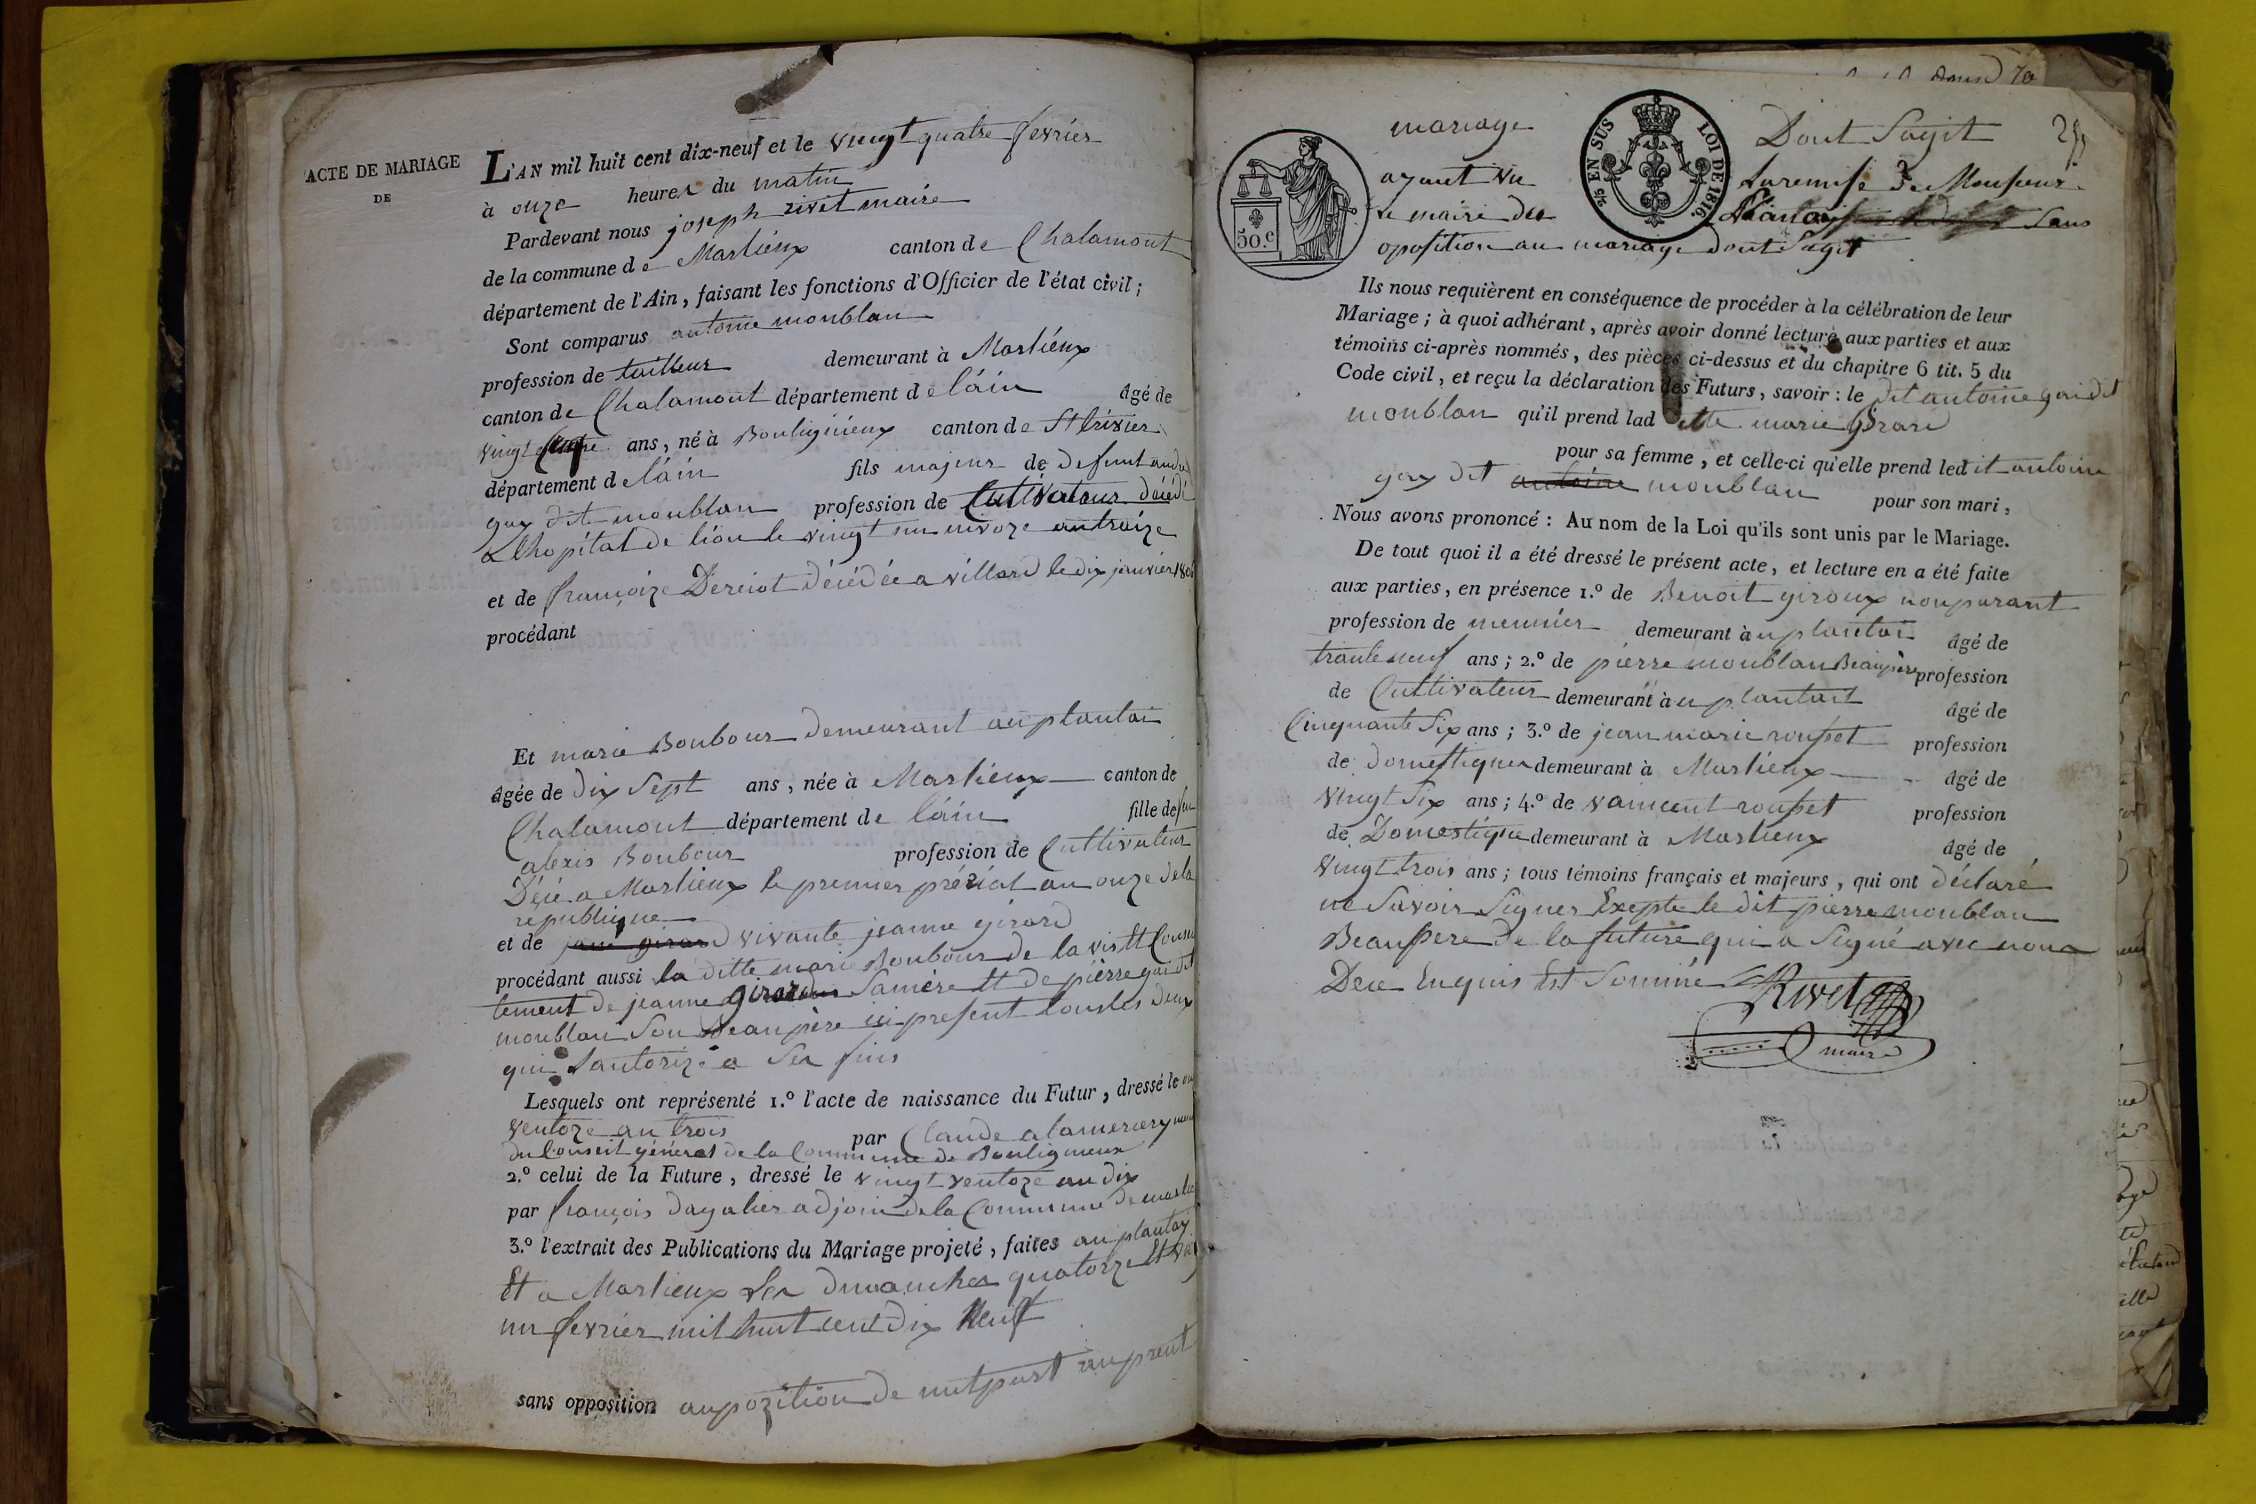 ACTE DE MARIAGE
DE
L'AN mil huit cent dix-neuf et le vingt quatre fevrier
à onze heures du matin
Pardevant nous joseph rivet maire
de la commune de Marlieux canton de Chalamont
département de l'Ain, faisant les fonctions d'Officier de l'état civil;
Sont comparus antoine moublan
profession de tailleur demeurant à Marlieux
canton de Chalamont département de láin âgé de
vingt ans, né à Boulignieux canton de St trivier
département de láin fils majeur de defunt andré
guy dit moublan profession de Cultivateur décédé
a Lhopital de lion le vingt un nivoze an traize
et de françoize Dereiot décédée a villard le dix janvier
procédant
Et marie Boubour demeurant au plantai
âgée de dix Sept ans, née à Marlieux canton de
Chalamont département de láin fille de feu
alexis Boubour profession de Cultivateur
Décé a Marlieux le premier prérial an onze de la
republique
et de vivante jeanne gérard
procédant aussi la ditte marie Boubour de la vis tt Consen
tement de jeanne girard Samère Et de pièrre gui dit
moublan Son Beaupère ici present tous les deux
qui Lautorize a Ses fins
Lesquels ont représenté 1.º l'acte de naissance du Futur, dressé le
ventoze an trois par Claude alamercery
du Conseil général de la Commune de Bouligneux
2.º celui de la Future, dressé le vingt ventoze an dix
par françois dagalier adjoin de la Commune de marlieu
3.º l'extrait des Publications du Mariage projeté, faites au plantay
Et a Marlieux les dimanches quatorze Et vin
un fevrier mil huit cent dix Neuf
sans opposition de nulpart
mariage Dont Sagit
ayant vu La remise de Monsieur
Le maire des Sans
oposition au mariage dont Sagit
50.c
EN SUS LOI DE 1816.
Ils nous requièrent en conséquence de procéder à la célébration de leur
Mariage; à quoi adhérant, après avoir donné lecture aux parties et aux
témoins ci-après nommés, des pièces ci-dessus et du chapitre 6 tit. 5 du
Code civil, et reçu la déclaration des Futurs, savoir: le dit antoine gui dit
moublan qu'il prend lad itte marie girard
pour sa femme, et celle-ci qu'elle prend led it antoine
guy dit antoine moublan pour son mari,
Nous avons prononcé: Au nom de la Loi qu'ils sont unis par le Mariage.
De tout quoi il a été dressé le présent acte, et lecture en a été faite
aux parties, en présence 1.º de Benoit giroux nonparant
profession de meunier demeurant à u plantai âgé de
trante neuf ans; 2.º de pierre moublan Beaupère profession
de Cultivateur demeurant à u plantait âgé de
Cinquante Six ans; 3.º de jean marie rousset profession
de domestique demeurant à Marlieux âgé de
vingt Six ans; 4.º de vaincent rousset profession
de Domestique demeurant à Marlieux âgé de
vingt trois ans; tous témoins français et majeurs, qui ont déclaré
ne Savoir Signer Exepte le dit pierre moublan
Beaupere de la future qui a Signé avec nous
Dece Enquis Est Sommé Rivet
maire